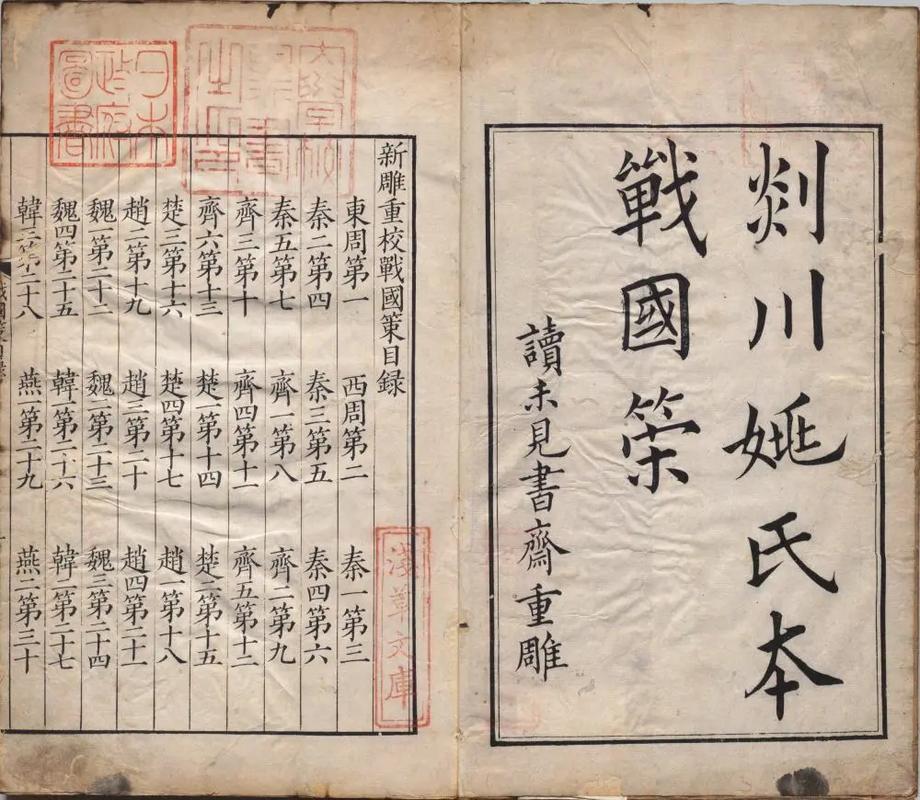 剡川姚氏本
戰國策
讀未見書齋重雕
新雕重校戰國策目録
東周第一 西周第二 秦一第三
秦二第四 秦三第五 秦四第六
秦五第七 齊一第八 齊二第九
齊三第十 齊四第十一 齊五第十二
齊六第十三 楚一第十四 楚二第十五
楚三第十六 楚四第十七 趙一第十八
趙二第十九 趙三第二十 趙四第二十一
魏一第二十二 魏二第二十三 魏三第二十四
魏四第二十五 韓一第二十六 韓二第二十七
韓三第二十八 燕一第二十九 燕二第三十
戰國策目録
大學校圖書之印
日本政府圖書
淺草文庫